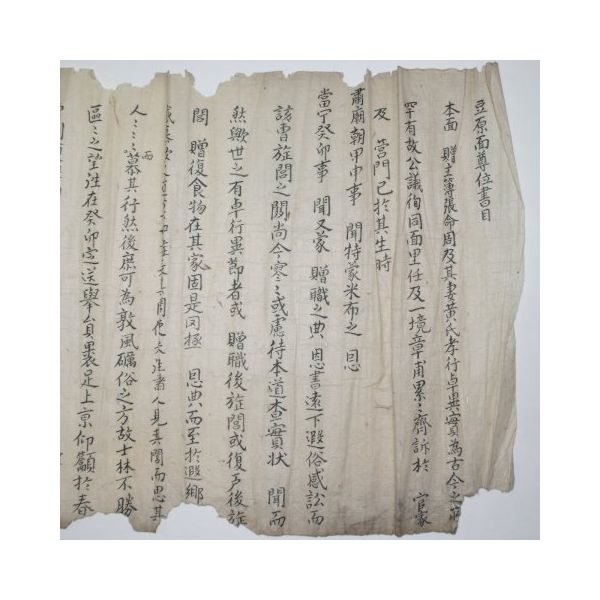 豆原面尊位書目
本面 贈主簿張命周及其妻黃氏孝行卓異實爲古今之所
罕有故公議徇同面里任及一境章甫累〻齊訴於 官家
及 營門已於其生時
肅廟朝甲申事 聞特蒙米布之 恩
當宁癸卯事 聞又蒙 贈職之典 恩書遠下遐俗感訟而
該曹旌閭之關尚今寥〻或慮待本道查實狀 聞而
然歟世之有卓行異節者或 贈職後旌閭或復戶後旌
閭 贈復食物在其家固是罔極 恩典而至於遐鄉
人見其閭而思其
人〻〻〻而慕其行然後庶可爲敦風礪俗之方故士林不勝
區〻之望泩在癸卯定送擧員裹足上京仰籲於春